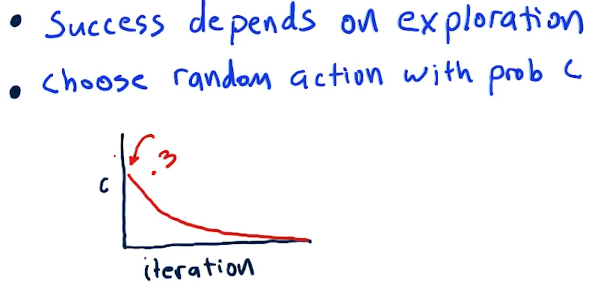 • Success depends on exploration
• choose random action with prob c
.3
c
iteration